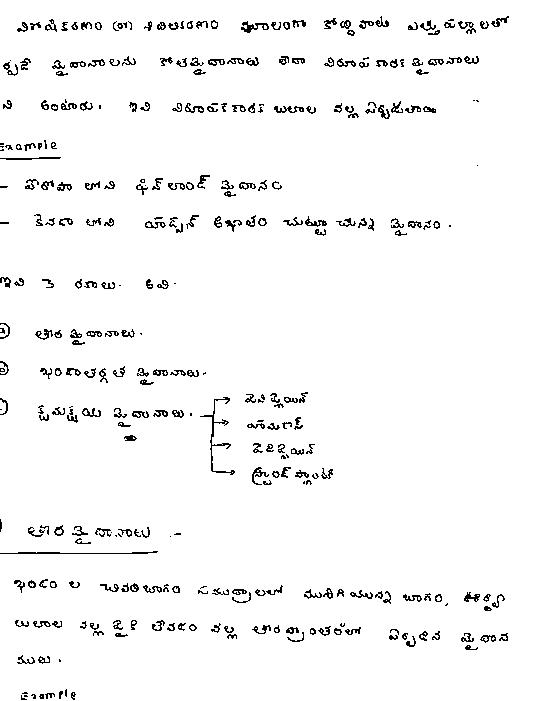 వికోషీకరణం (or) శిథిలీకరణం మూలంగా కోర్పివాటు ఎత్తు పల్లాలతో
ర్పడే మైదానాలను కోతమైదానాలు లేదా విరూపకారక మైదానాలు
ని అంటారు. ఇవి విరూపకారక బలాల వల్ల ఏర్పడుతాయి
Example
– యూరోపా లోని ఫిన్‌లాండ్ మైదానం
– కెనడా లోని హడ్సన్ అఖాతం చుట్టూ ఉన్న మైదానం.
ఇవి 3 రకాలు. అవి.
తీర మైదానాలు.
ఖండాంతర్గత మైదానాలు.
క్రమక్షయ మైదానాలు. → పెనిప్లెయిన్
→ హామడాస్
→ పెడిప్లెయిన్
→ స్ట్రాండ్ ప్లాంట్
తీర మైదానాలు :-
ఖండం ల చివరిభాగం సముద్రాలలో మునిగియున్న భాగం, ఊర్ధ్వ
బలాల వల్ల పైకి లేవడం వల్ల తీరప్రాంతంలో ఏర్పడిన మైదాన
ములు.
Example